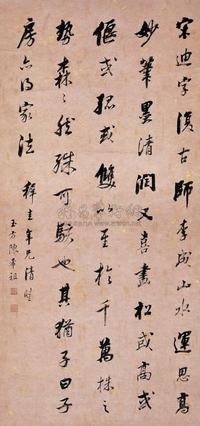 宋迪字復古師李成山水運思高
妙筆墨清潤又喜畫松或高或
偃或孤或雙以至於千萬株之
勢森〻然殊可駭也其猶子曰子
房亦得家法 圭年兄清
玉方陳希祖